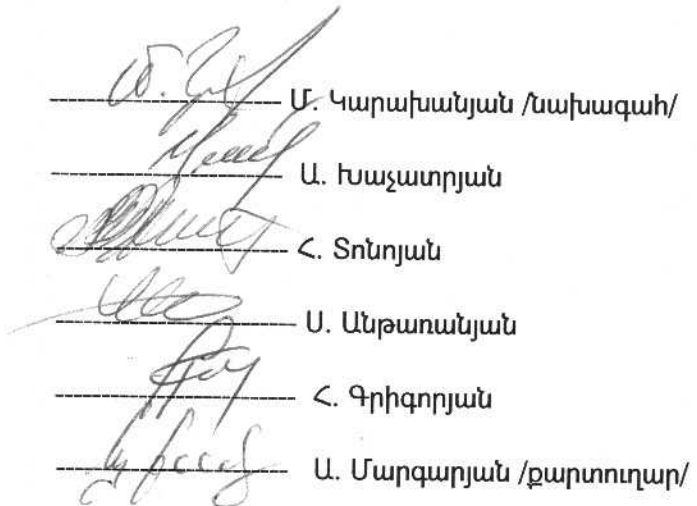 Մ. Կարախանյան /նախագահ/
Ա. Խաչատրյան
Հ. Տոնոյան
Ս. Անթառանյան
Հ. Գրիգորյան
Ա. Մարգարյան /քարտուղար/